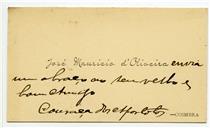 José Mauricio d'Oliveira envia
um abraço ao seu velho e
bom amigo
COIMBRA